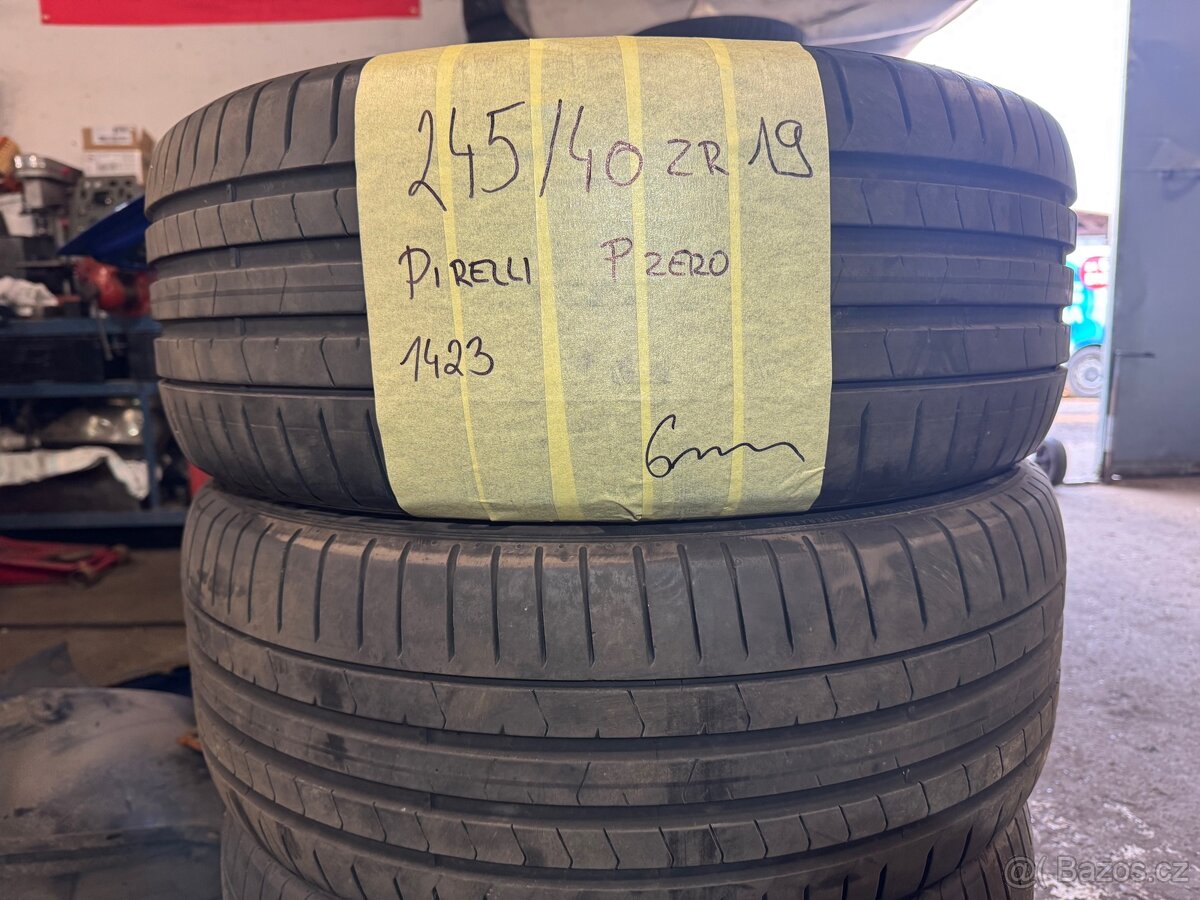 245/40 ZR 19
PIRELLI P ZERO
1423
6mm
@( Bazos.cz